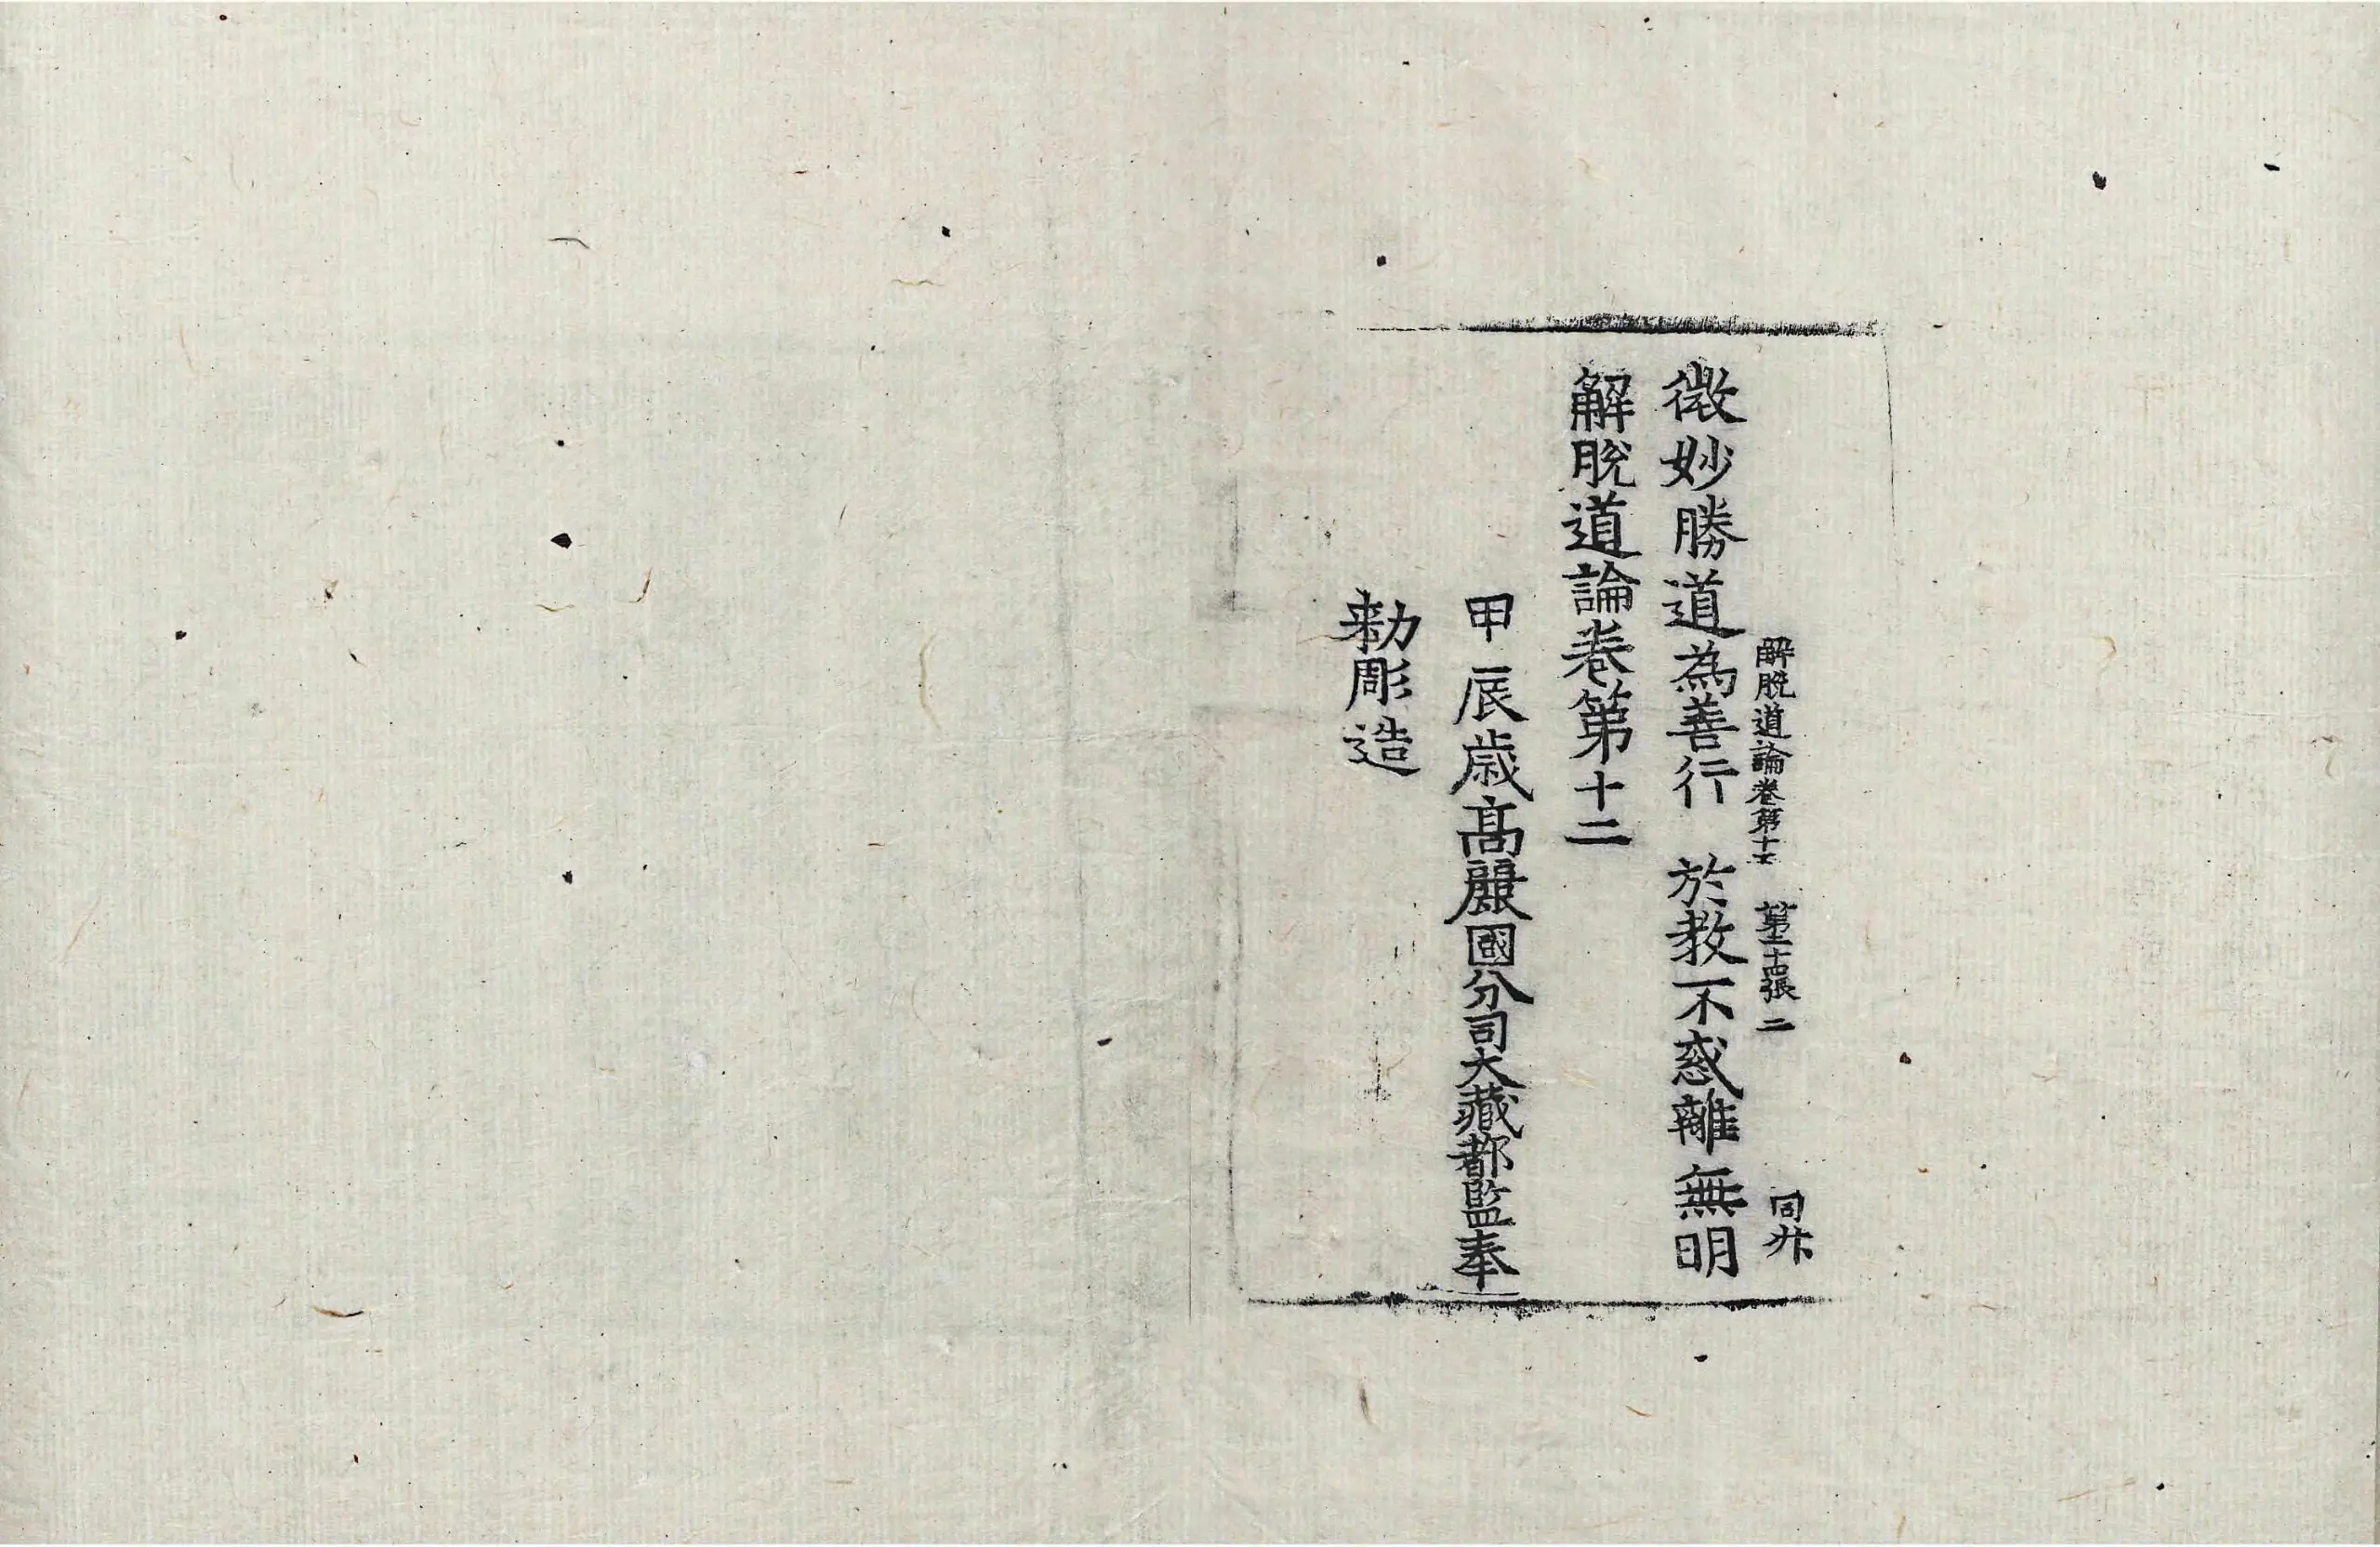 解脫道論卷第十二 第二十四張 同
微妙勝道為善行 於教不惑離無明
解脫道論卷第十二
甲辰歳高麗國分司大藏都監奉
勅彫造